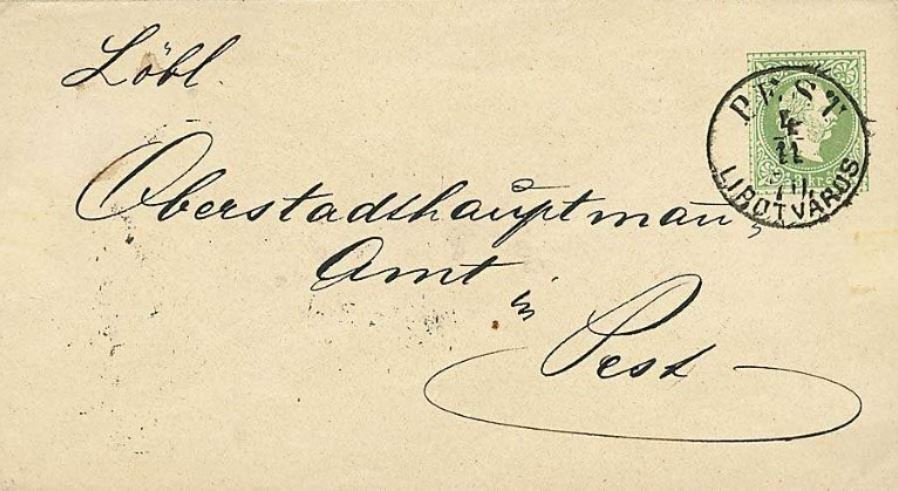 Löbl.
Oberstadtshauptman̄
Amt
in
Pest
PEST
4
11
LIPOTVÁROS